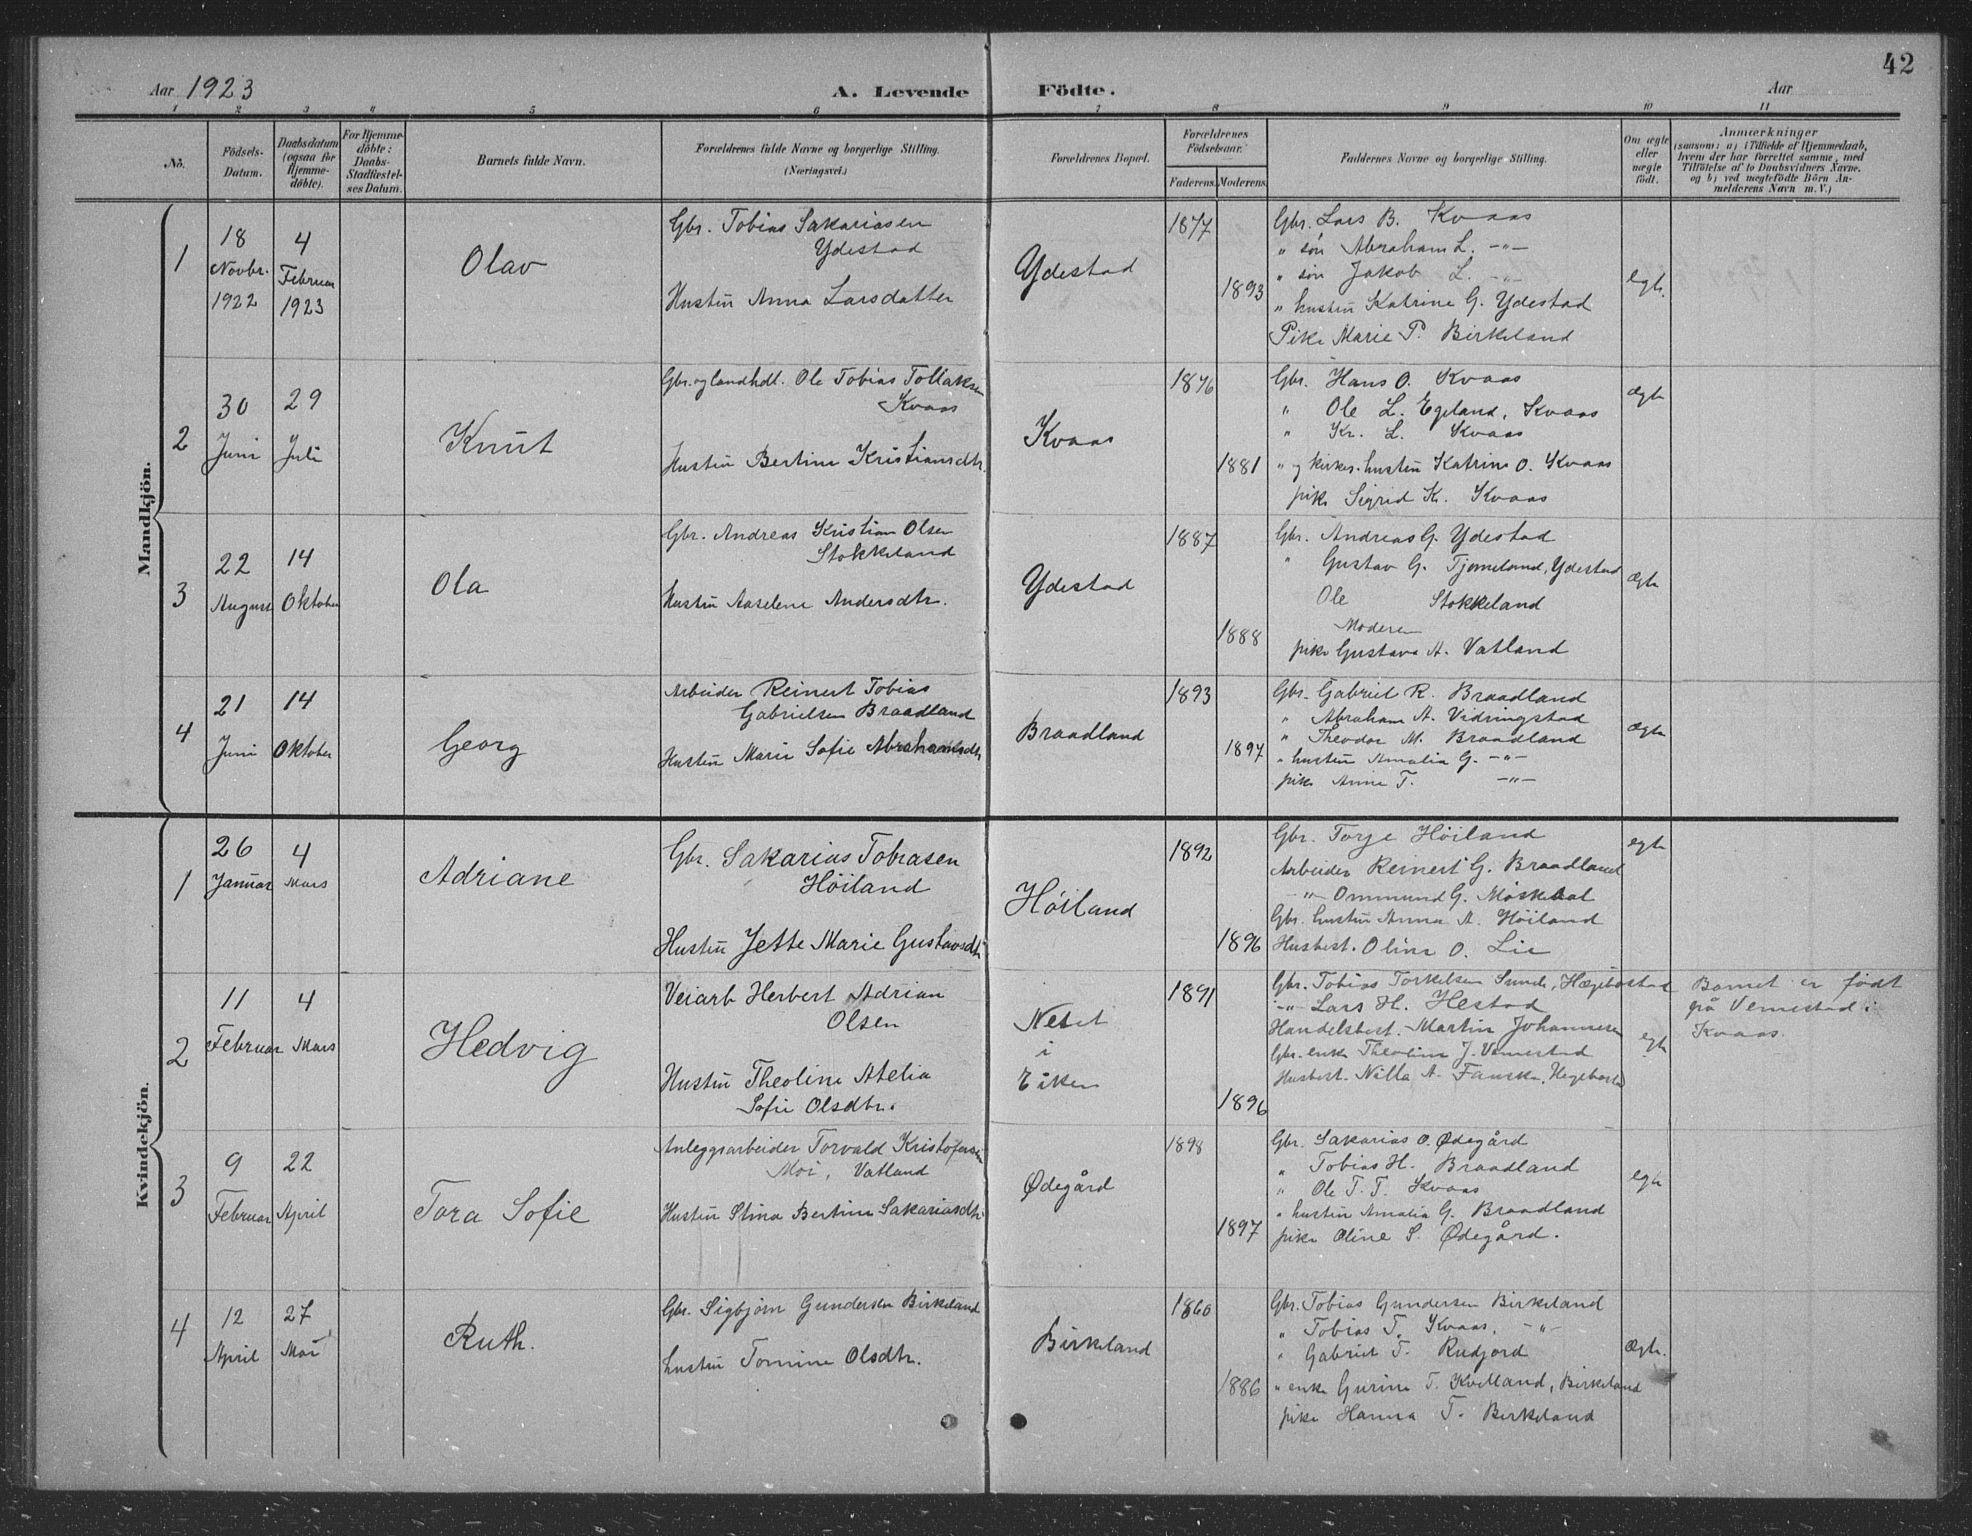 42
Aar 1923 A. Levende Födte. Aar
1 2 3 " 5 6 7 8 9 10 11
Nö.
Födsels-Datum.
Daabsdatum (ogsaa for Hjemmedöbte).
For Hjemmedöbte: Daabs-Stadfæstelses Datum.
Barnets fulde Navn.
Forældrenes fulde Navne og borgerlige Stilling. (Næringsvei.)
Forældrenes Bopæl.
Forældrenes Födselsaar.
Faderens. Moderens.
Faddernes Navne og borgerlige Stilling.
Om ægte eller uægte födt.
Anmærkninger
(saasom: a) i Tilfælde af Hjemmedaab, hvem der har forrettet samme, med Tilföielse af to Daabsvidners Navne. og b) ved uegtefödte Börn Anmelderens Navn m. V.)
Mandkjön.
1
18 Novbr. 1922
4 Februar 1923
Olav
Gbr. Tobias Sakariasen
Ydestad
Hustru Anna Larsdatter
Ydestad
1877
1893
Gbr. Lars B. Kvaas
" søn Abraham L. -"-
" søn Jakob L. -"-
" hustru Katrine G. Ydestad
Pike Marie P. Birkeland
egte.
2
30 Juni
29 Juli
Knut
Gbr. og landhdl. Ole Tobias Tollaksen
Kvaas
Hustru Bertine Kristiansdtr.
Kvaas
1876
1881
Gbr. Hans O. Kvaas
" Ole L. Egeland, Kvaas
" Kr. L. Kvaas
" og kirkes. hustru Katrine O. Kvaas
pike Sigrid K. Kvaas
ægte
3
22 August
14 Oktober
Ola
Gbr. Andreas Kristian Olsen
Stokkeland
Hustru Aaselene Andersdtr.
Ydestad
1887
1888
Gbr. Andreas G. Ydestad
" Gustav G. Tjomeland, Ydestad
Ole Stokkeland
Moderen
pike Gustava A. Vatland
ægte
4
21 Juni
14 Oktober
Georg
Arbeider Reinert Tobias
Gabrielsen Braadland
Hustru Marie Sofie Abrahamsdtr
Braadland
1893
1897
Gbr. Gabriel R. Braadland
" Abraham A. Vidringstad
" Theodor M. Braadland
" hustru Amalia G. -"-
pike Anne T. -"-
ægte
Kvindekjön.
1
26 Januar
4 Mars
Adriane
Gbr. Sakarias Tobiasen
Höiland
Hustru Jette Marie Gustavsdtr
Höiland
1892
1896
Gbr. Torje Höiland
Arbeider Reinert G. Braadland
-"- Ommund G. Moskedal
Gbr. hustru Anna A. Höiland
Husbest. Oline O. Lie
egte
2
11 Februar
4 Mars
Hedvig
Veiarb Herbert Adrian
Olsen
Hustru Theoline Atelia
Sofie Olsdtr.
Neset
i
Eiken
1891
1896
Gbr. Tobias Torkelsen Sunde, Hægebostad
-"- Lars H. Hestad
Handelsbest. Martin Johannesen
Gbr. enke Theoline J. Vemestad
Husbest. Nilla A. Fanske, Hegebostad
egte
Barnet er født
på Vemestad i
Kvaas.
3
9 Februar
22 April
Tora Sofie
Anleggsarbeider Torvald Kristofersen
Moi, Vatland
Hustru Stina Bertine Sakariasdtr
Ødegård
1898
1897
Gbr. Sakarias O. Ødegård
" Tobias H. Braadland
" Ole T. T. Kvaas
" hustru Amalia G. Braadland
pike Oline S. Ødegård.
egte
4
12 April
27 Mai
Ruth.
Gbr. Sigbjørn Gundersen Birkeland
hustru Tomine Olsdtr.
Birkeland
1860
1886
Gbr. Tobias Gundersen Birkeland
" Tobias T. Kvaas, -"-
" Gabriel T. Rudjord
" enke Gurine T. Kvelland, Birkeland
pike Hanna T. Birkeland
Ægte.